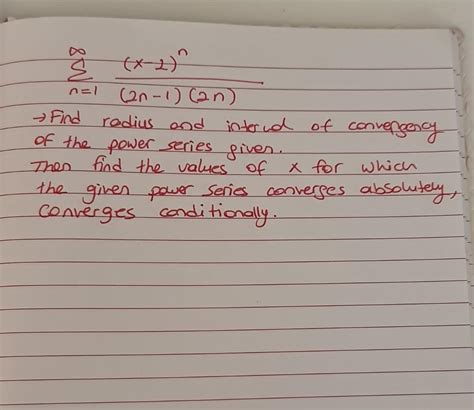 ∞
Σ (x-2)^n / (2n-1)(2n)
n=1
→Find radius and interval of convergency
of the power series given.
Then find the values of x for which
the given power series converges absolutely,
converges conditionally.